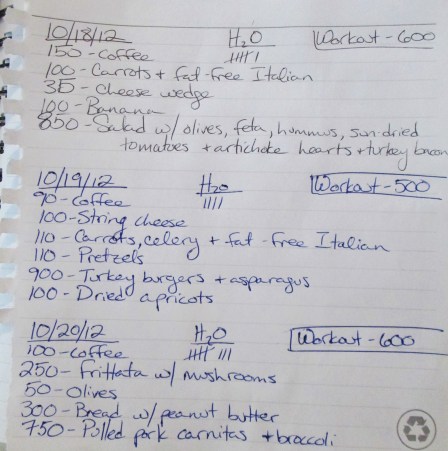 10/18/12 H2O Workout - 600
150 - Coffee
100 - Carrots + fat-free Italian
35 - Cheese wedge
100 - Banana
850 - Salad w/ olives, feta, hummus, sun-dried
tomatoes + artichoke hearts + turkey bacon
10/19/12 H2O Workout - 500
90 - Coffee
100 - String cheese
110 - Carrots, celery + fat-free Italian
110 - Pretzels
900 - Turkey burgers + asparagus
100 - Dried apricots
10/20/12 H2O Workout - 600
100 - Coffee
250 - Frittata w/ mushrooms
50 - Olives
300 - Bread w/ peanut butter
750 - Pulled pork carnitas + broccoli